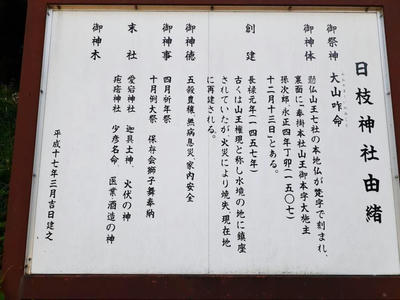 日枝神社由緒
御祭神 大山咋命
御神体 懸仏山王七社の本地仏が梵字で刻まれ、
裏面に「奉掛本社山王御本字大施主
孫次郎・永正四年丁卯(一五〇七)
十二月十三日」とある。
創建 長禄元年(一四五七年)
古くは山王権現と称し水境の地に鎮座
されていたが火災により焼失、現在地
に再建される。
御神徳 五穀豊穣、無病息災、家内安全
御神事 四月祈年祭
十月例大祭 保存会獅子舞奉納
末社 愛宕神社 迦具土神、火伏の神
疱瘡神社 少彦名命、医業酒造の神
御神木
平成十七年三月吉日建之